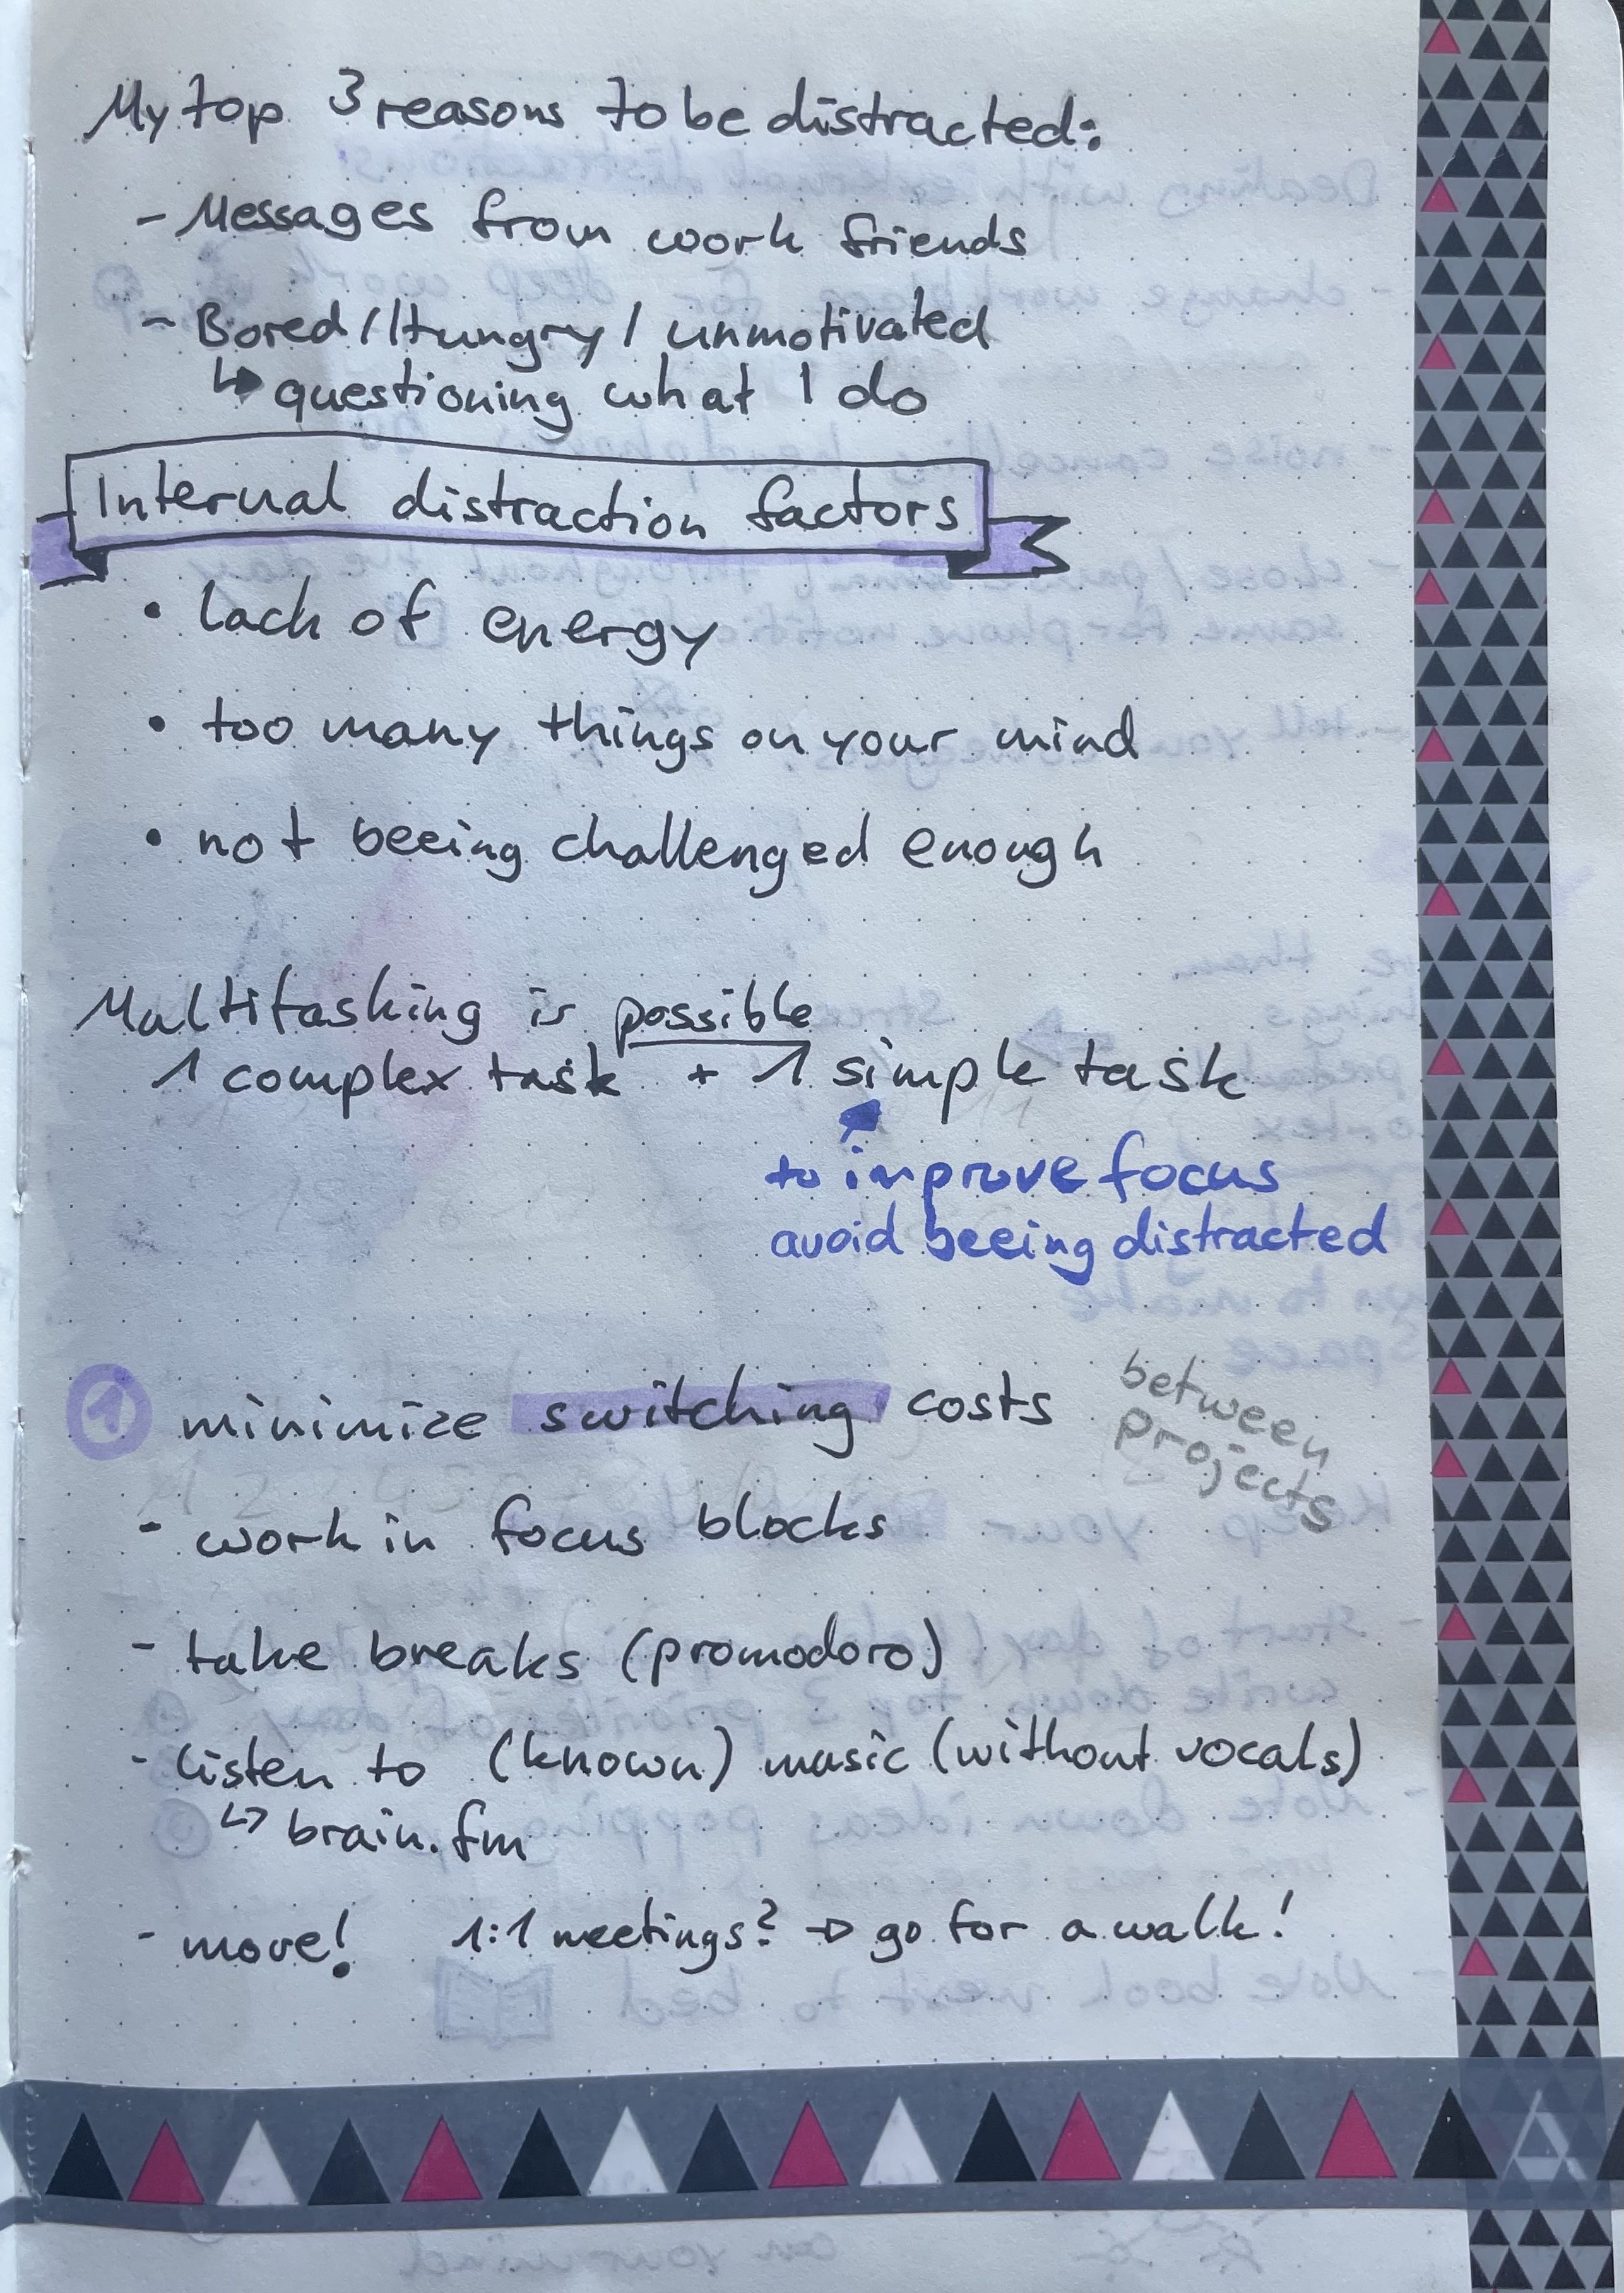 My top 3 reasons to be distracted:
- Messages from work friends
- Bored / Hungry / unmotivated
↳ questioning what I do
Internal distraction factors
• lack of energy
• too many things on your mind
• not beeing challenged enough
Multitasking is possible
1 complex task + 1 simple task
to improve focus
avoid beeing distracted
① minimize switching costs between
projects
- work in focus blocks
- take breaks (promodoro)
- listen to (known) music (without vocals)
↳ brain.fm
- move! 1:1 meetings? → go for a walk!